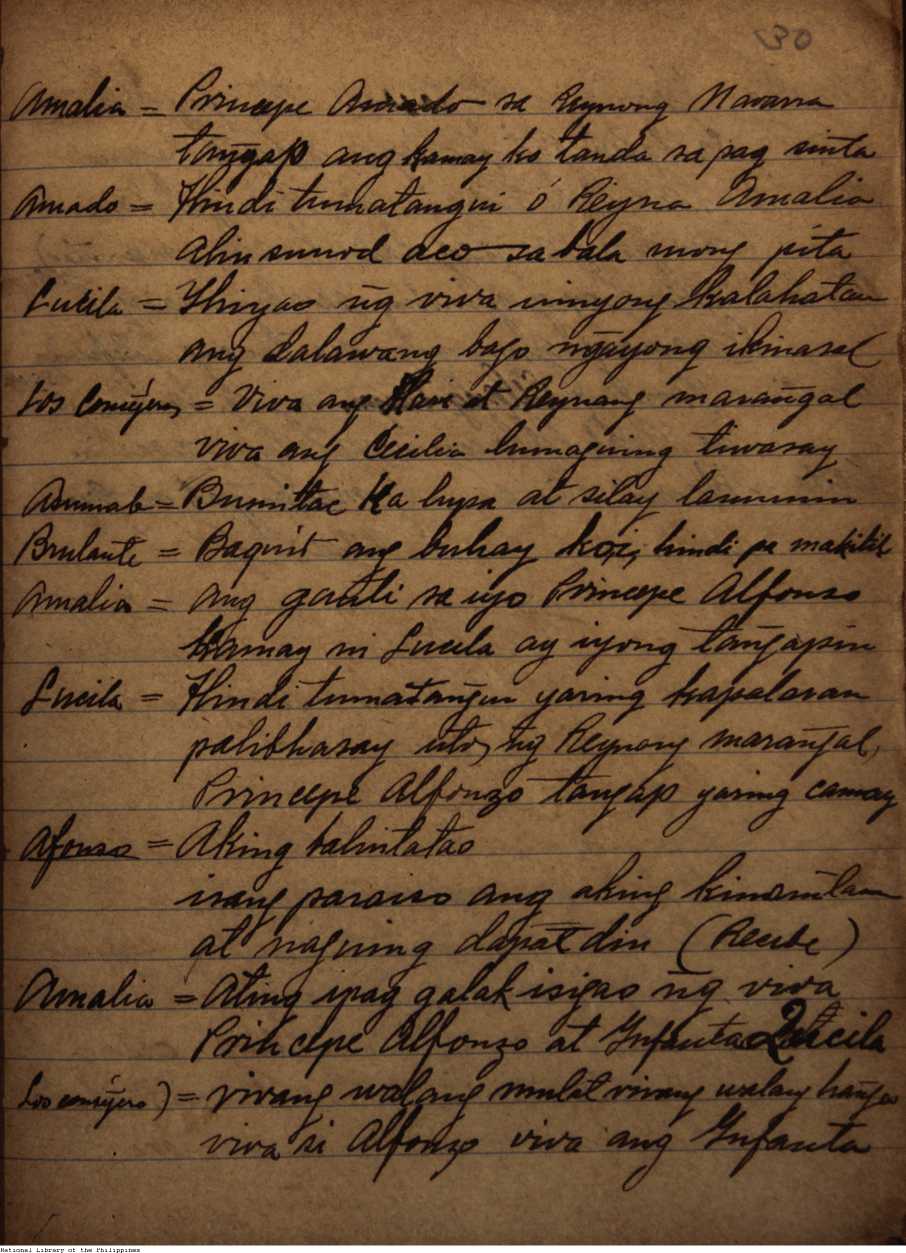 30
Amalia = Principe Amado sa Reynong Navarra
tangap ang kamay ko tanda sa pag sinta
Amado = Hindi tumatangui ó Reyna Amalia
alinsunod aco sa bala mong pita
Lucila = Ihiyao ng viva ninyong kalahatan
ang dalawang bago ngayong ikinasal
Los Consejeros = Viva ang Hari at Reynang marangal
viva ang Cecilia lumaguing tiwasay
= Bumitac ka lupa at silay lamunin
Brulante = Baquit ang buhay koi, hindi pa makitil
Amalia = ang ganti sa iyo Principe Alfonso
kamay ni Lucila ay iyong tangapin
Lucila = Hindi tumatangui yaring kapalaran
palibhasay utos, ng Reynang marangal,
Principe Alfonzo tangap yaring camay
Afonso = Aking balintatao
isang paraiso ang aking
at naguing dapat din (Recibe)
Amalia = Ating ipag galak isigao ng viva
Principe Alfonzo at Infanta Lucila
Los consejeros) = vivang walang mulat vivang walang hanga
viva si Alfonzo viva ang Infanta
National Library of the Philippines